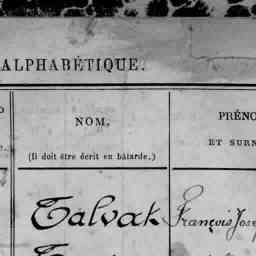 ALPHABÉTIQUE.
NOM.
(Il doit être écrit en bâtarde.)
PRÉNO
ET SURN
Talvak François Jose